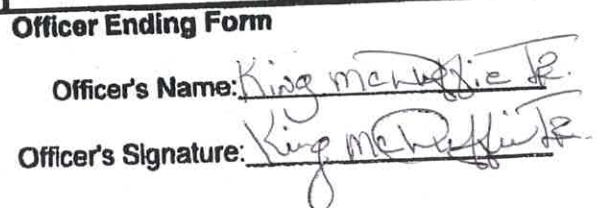 Officer Ending Form
Officer's Name: King McDuffie Jr.
Officer's Signature: King McDuffie Jr.